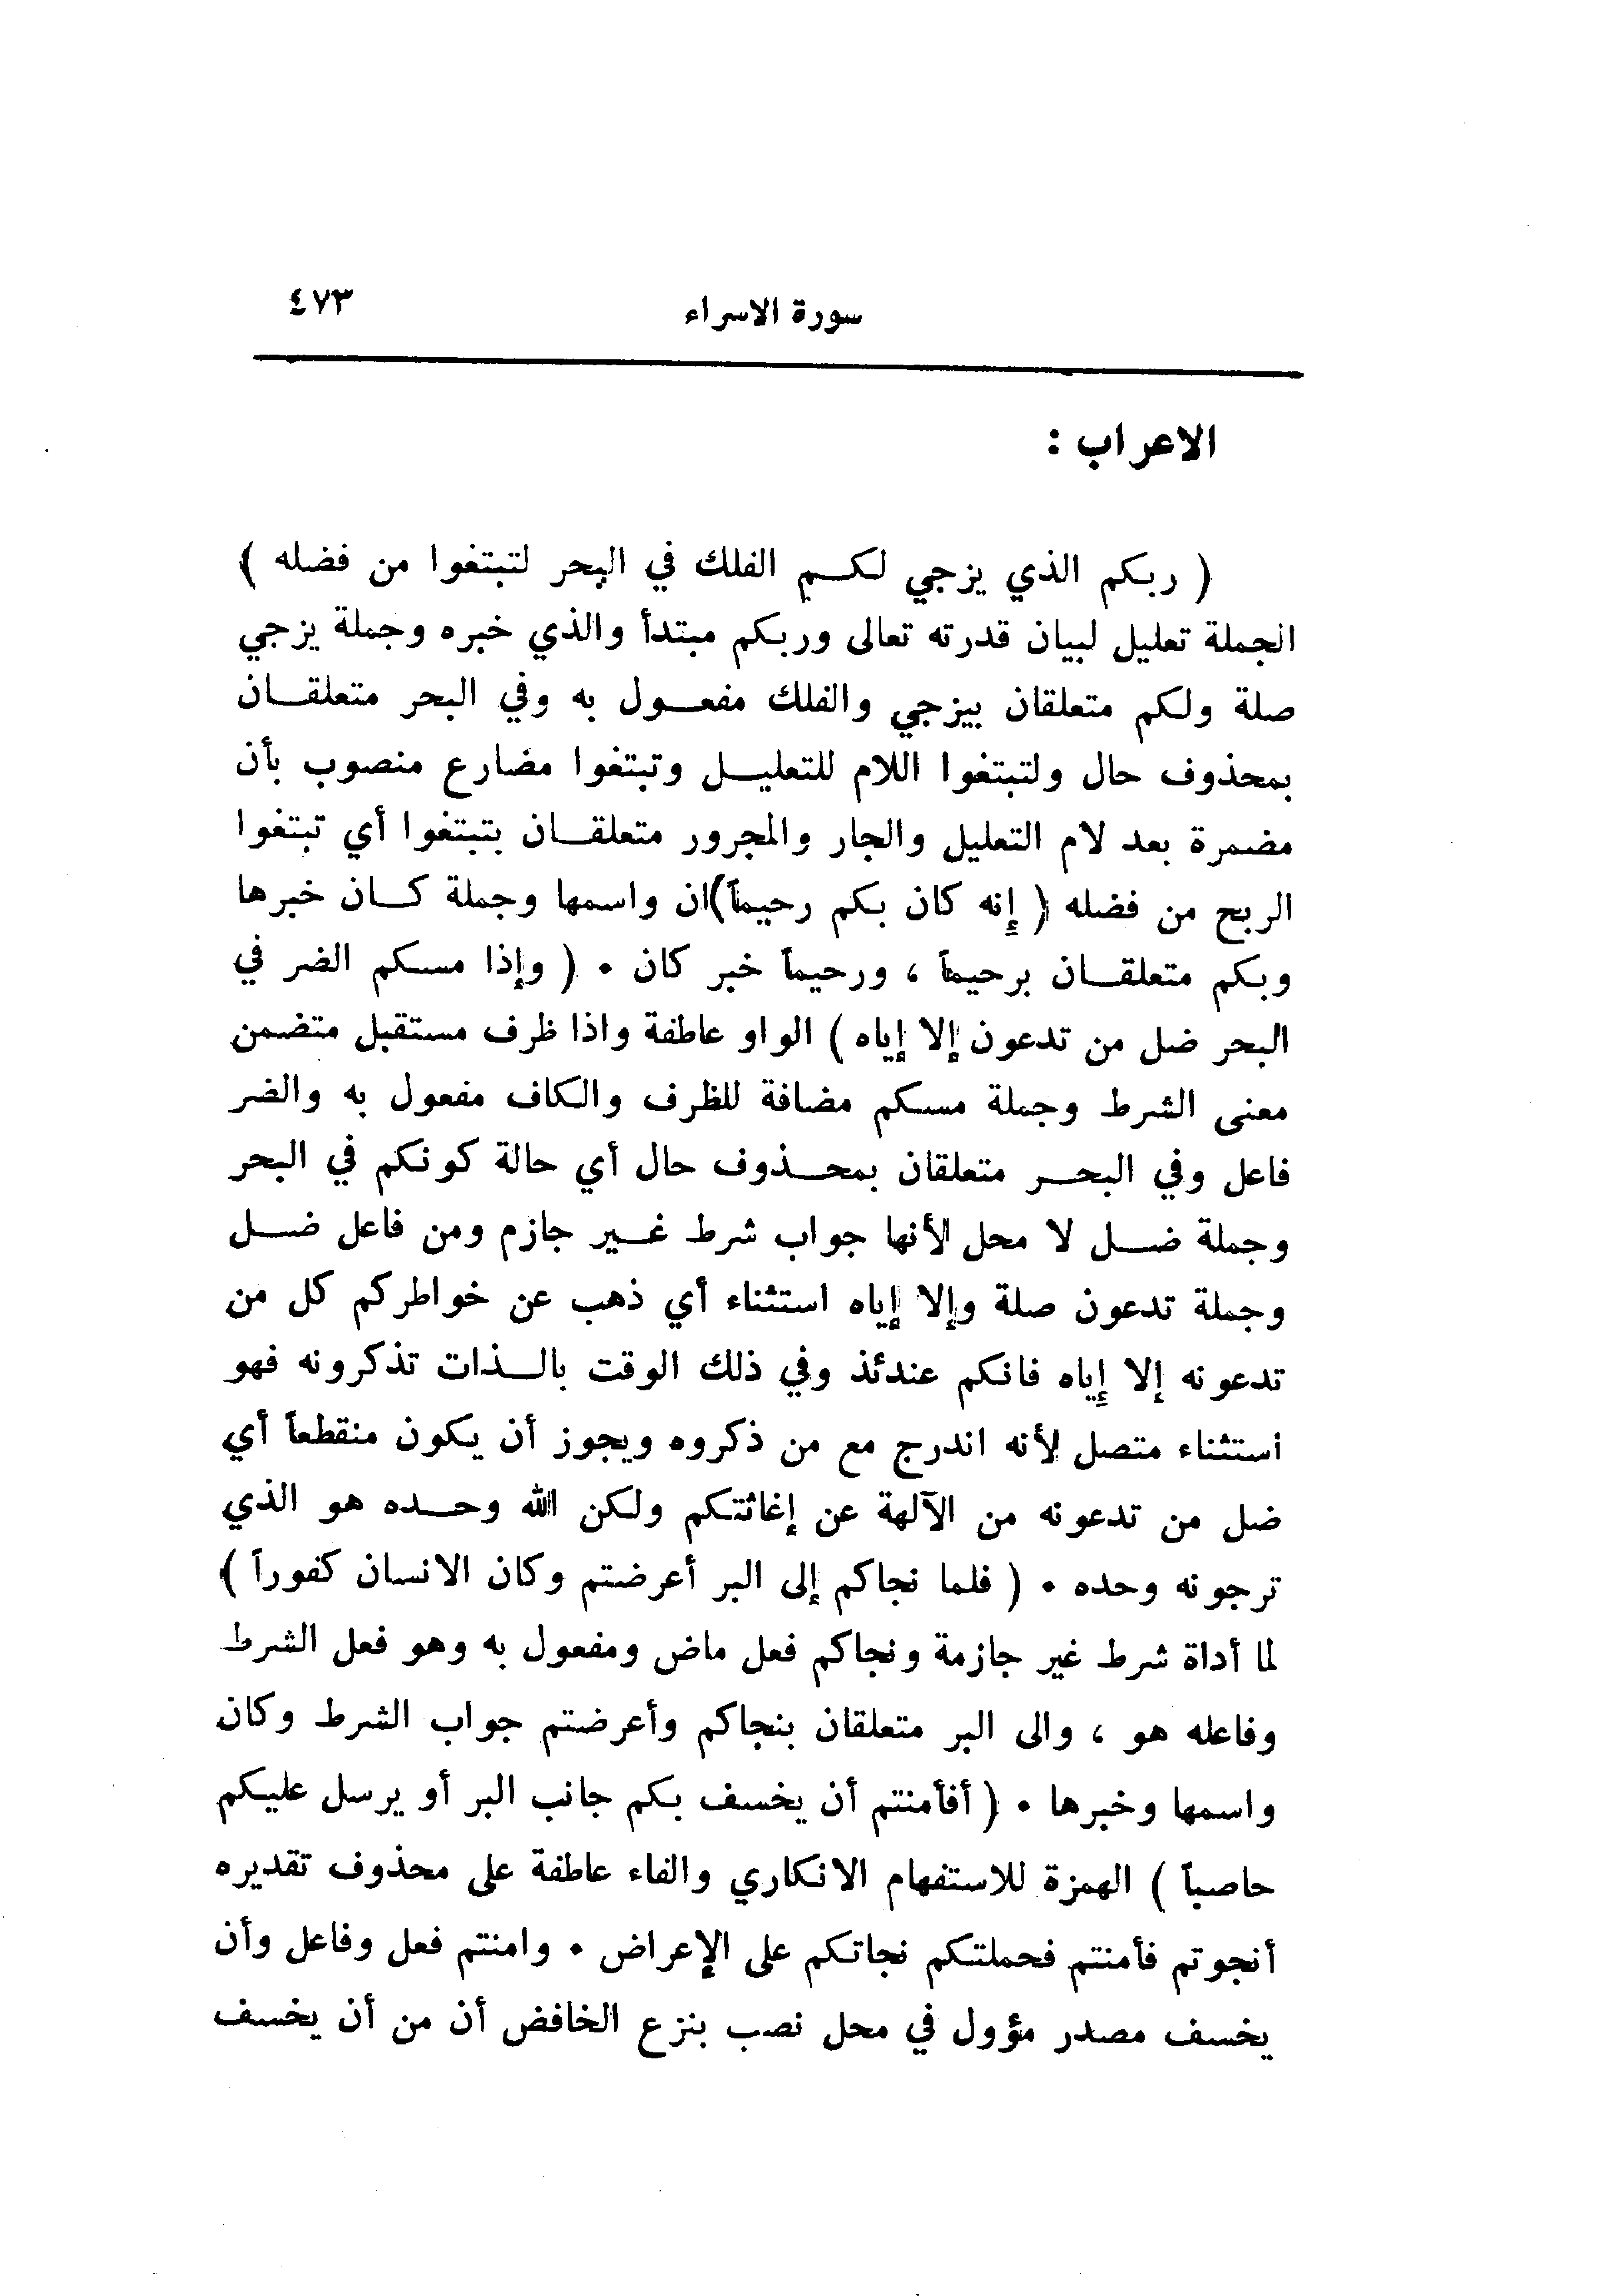 سورة الاسراء ٤٧٣
الاعراب :
( ربكم الذي يزجي لكم الفلك في البحر لتبتغوا من فضله )
الجملة تعليل لبيان قدرته تعالى وربكم مبتدأ والذي خبره وجملة يزجي
صلة ولكم متعلقان بيزجي والفلك مفعول به وفي البحر متعلقان
بمحذوف حال ولتبتغوا اللام للتعليل وتبتغوا مضارع منصوب بأن
مضمرة بعد لام التعليل والجار والمجرور متعلقان بتبتغوا أي تبتغوا
الربح من فضله ( إنه كان بكم رحيماً)ان واسمها وجملة كان خبرها
وبكم متعلقان برحيماً ، ورحيماً خبر كان • ( وإذا مسكم الضر في
البحر ضل من تدعون إلا إياه ) الواو عاطفة واذا ظرف مستقبل متضمن
معنى الشرط وجملة مسكم مضافة للظرف والكاف مفعول به والضر
فاعل وفي البحر متعلقان بمحذوف حال أي حالة كونكم في البحر
وجملة ضل لا محل لأنها جواب شرط غير جازم ومن فاعل ضل
وجملة تدعون صلة وإلا إياه استثناء أي ذهب عن خواطركم كل من
تدعونه إلا إياه فانكم عندئذ وفي ذلك الوقت بالذات تذكرونه فهو
استثناء متصل لأنه اندرج مع من ذكروه ويجوز أن يكون منقطعاً أي
ضل من تدعونه من الآلهة عن إغاثتكم ولكن الله وحده هو الذي
ترجونه وحده • ( فلما نجاكم إلى البر أعرضتم وكان الانسان كفوراً )
لما أداة شرط غير جازمة ونجاكم فعل ماض ومفعول به وهو فعل الشرط
وفاعله هو ، والى البر متعلقان بنجاكم وأعرضتم جواب الشرط وكان
واسمها وخبرها • ( أفأمنتم أن يخسف بكم جانب البر أو يرسل عليكم
حاصباً ) الهمزة للاستفهام الانكاري والفاء عاطفة على محذوف تقديره
أنجوتم فأمنتم فحملتكم نجاتكم على الإعراض • وامنتم فعل وفاعل وأن
يخسف مصدر مؤول في محل نصب بنزع الخافض أن من أن يخسف